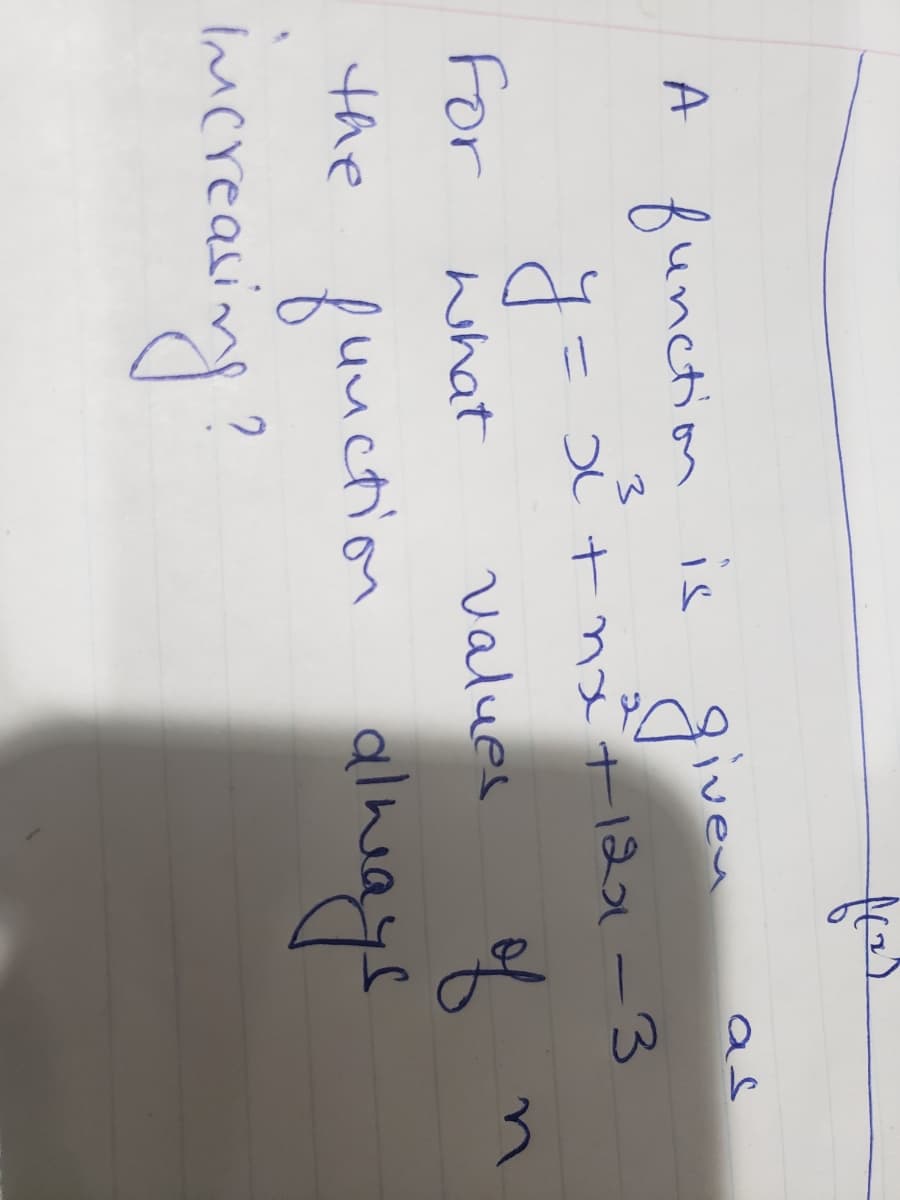 f(x)
A function is given as
y = x³ + nx² + 12x - 3
For what values of n
the function always
increasing?